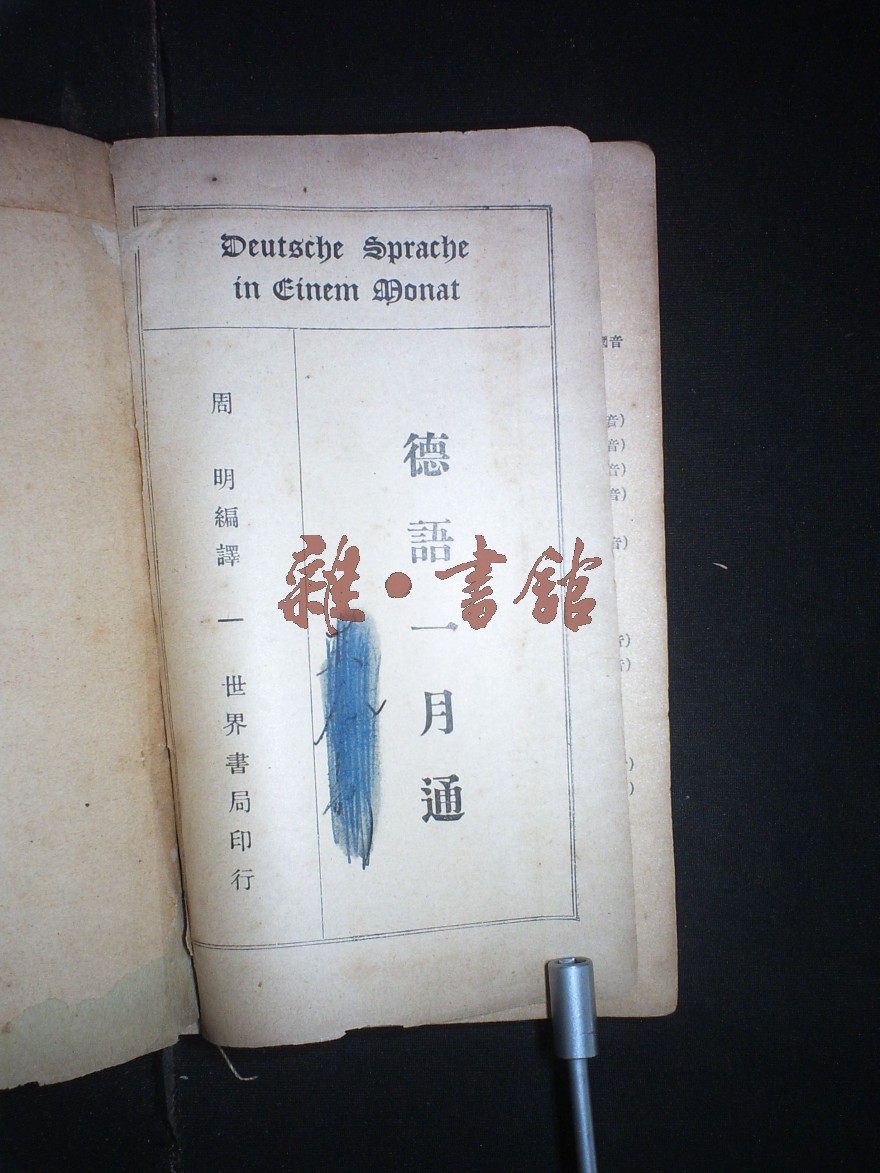 Deutsche Sprache
in Einem Monat
德語一月通
周明編譯 — 世界書局印行
雜·書館
音
音)
音)
音)
音)
音)
音)
音)